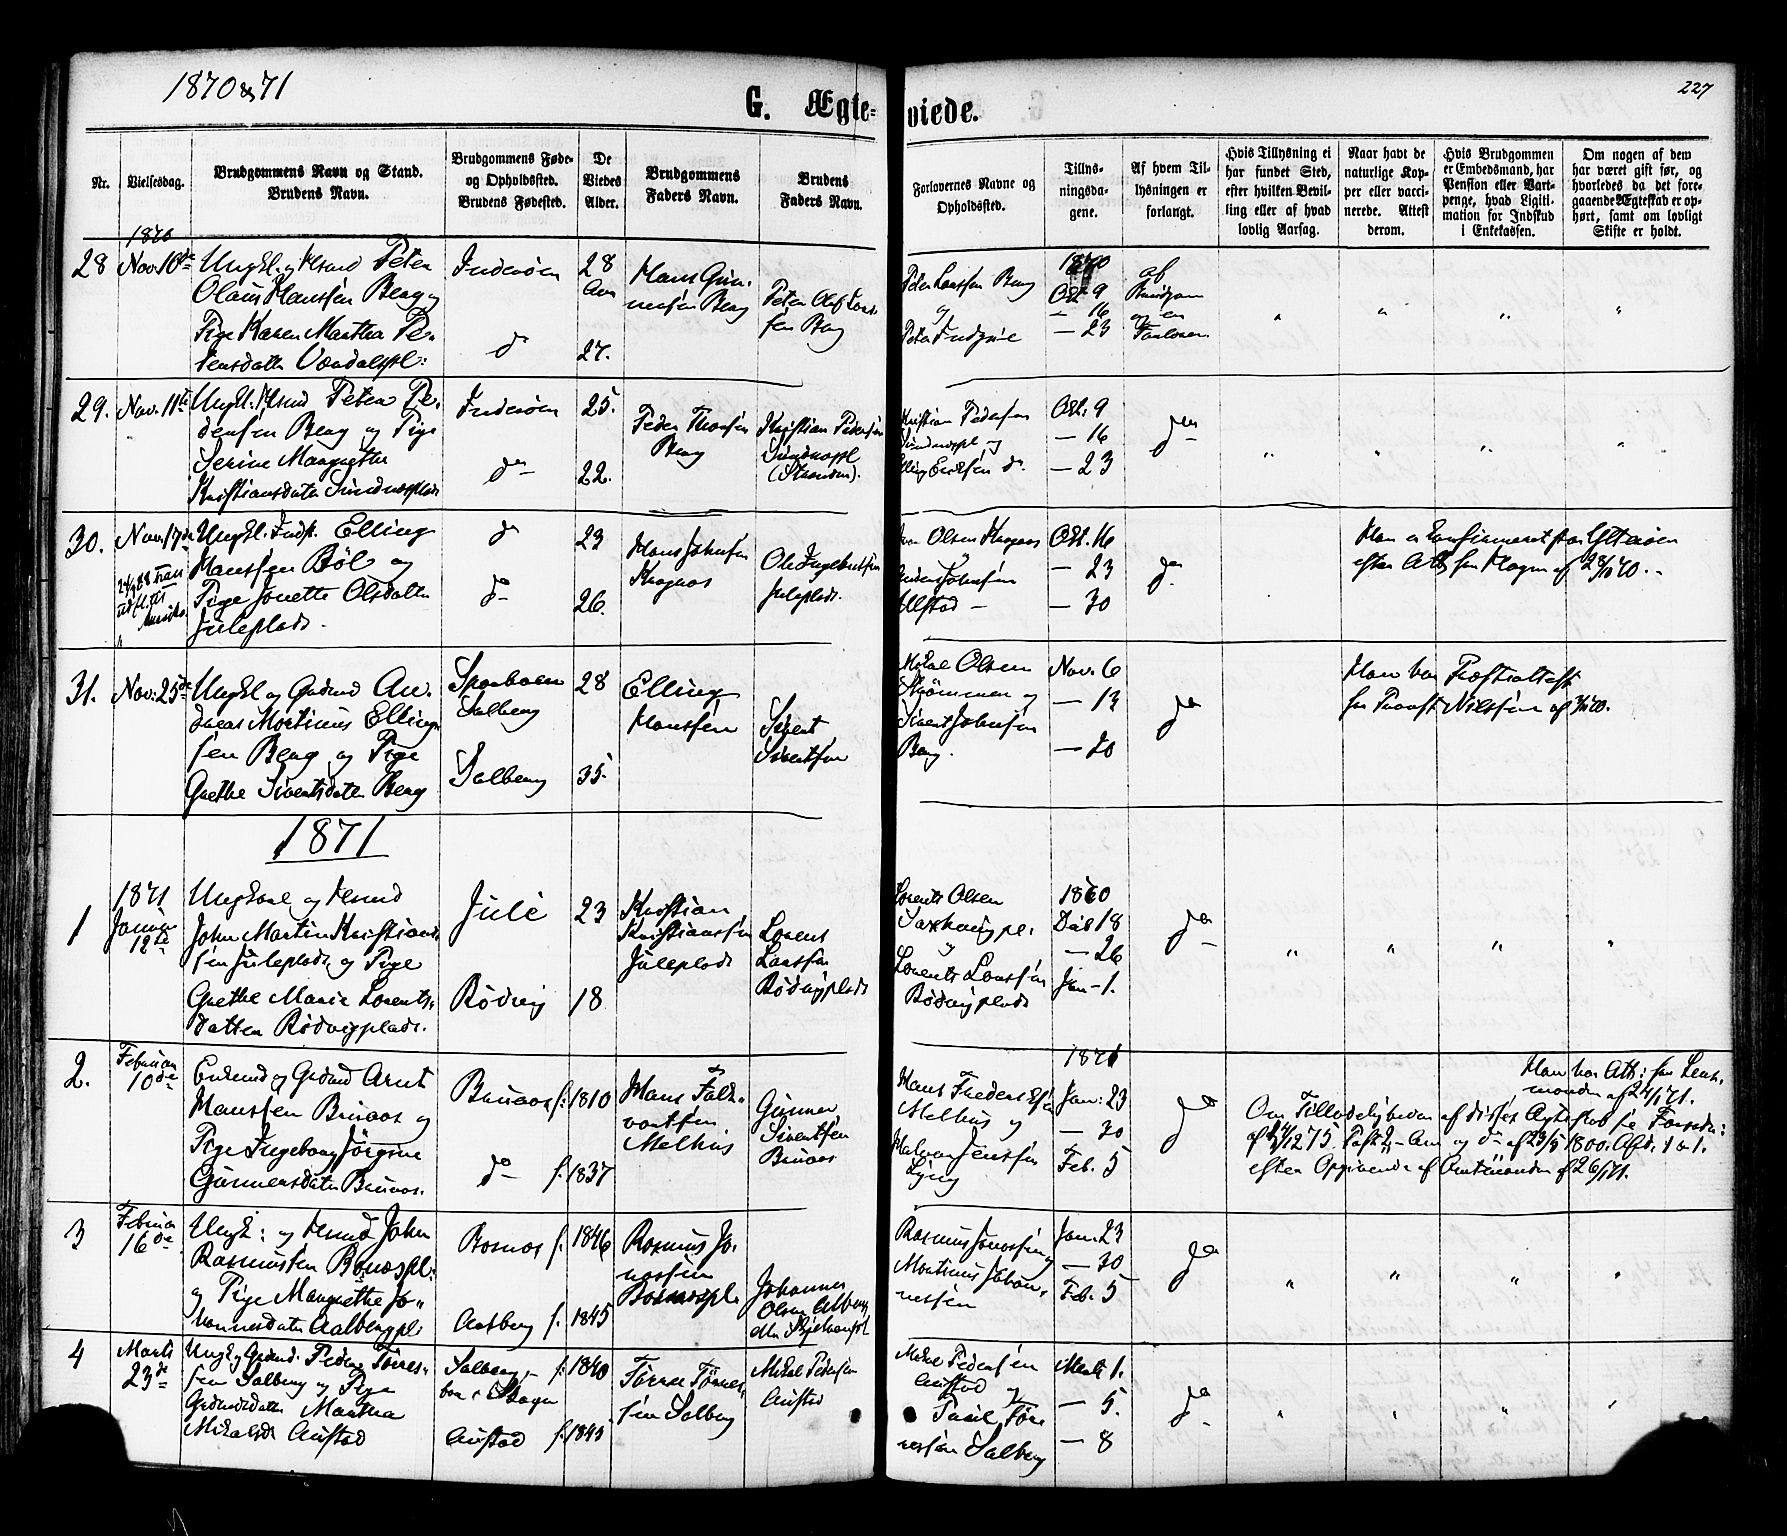 1870 & 71
227
G. Ægte-
viede.
Nr.
Vielsesdag.
Brudgommens Navn og Stand.
Brudens Navn.
Brudgommens Føde-
og Opholdssted.
Brudens Fødested.
De
Viedes
Alder.
Brudgommens
Faders Navn.
Brudens
Faders Navn.
Forlovernes Navne og
Opholdssted.
Tillys-
ningsda-
gene.
Af hvem Til-
lysningen er
forlangt.
Hvis Tillysning ei
har fundet Sted,
efter hvilken Bevil-
ling eller af hvad
lovlig Aarsag.
Naar havt de
naturlige Kop-
per eller vacci-
nerede. Attest
derom.
Hvis Brudgommen
er Embedsmand, har
Pension eller Vart-
penge, hvad Ligiti-
mation for Indskud
i Enkekassen.
Om nogen af dem
har været gift før, og
hvorledes da det fore-
gaaende Ægteskab er op-
hørt, samt om lovligt
Skifte er holdt.
1870
28
Nov. 10de
Ungkl. og Husmd Peter
Olaus Hanssen Berg og
Pige Karen Martha Pe-
tersdatter Værdalspl:
Inderøen
do
28
Aar
27.
Hans Gun-
nersen Berg
Peter Olaf Lars-
sen Berg
Peter Larssen Berg
og
1870
Oct. 9
— 16
— 23
af
Brudgom
og en
Forlover.
29.
Nov. 11te
Ungkl. Husmd Peter Pe-
dersen Berg og Pige
Serine Margrethe
Kristiansdatter Sundnesplads
Inderøen
do
25.
22.
Peder Thorsen
Berg
Kristian Pedersen
Sundnespl
(Stranden).
Kristian Pedersen
Sundnespl og
Elling Eriksen do.
Oct. 9
— 16
— 23
do
30.
Nov. 17de
Ungkl. Indst. Elling
Hanssen Bøl og
Pige Jonette Olsdatter
Juleplads.
do
do
23
26.
Hans Johnsen
Krognes
Ole Ingebretsen
Juleplads.
Olsen Krognes
og
Johnsen
Ulstad —
Oct. 16
— 23
— 30
do
Han er konfirmeret for Ytterøen
31.
Nov: 25de
Ungkl og Gaardmd An-
dreas Mortinus Elling-
sen Berg og Pige
Grethe Sivertsdatter Berg
Sparboen
Salberg
Salberg
28
35.
Elling
Hanssen
Sivert
Sivertsen
Mikal Olsen
Strømmen og
Sivert Johnsen
Berg.
Nov. 6
— 13
— 20
do
Han har Præsteattest
fra Provst Nilssen af
1871
1
1871
Januar
12te
Ungkarl og Husmd
John Martin Kristians-
sen Juleplads og Pige
Grethe Marie Lorents-
datter Rødvigplads.
Jule
Rødvig
23
18
Kristian
Kristianssen
Juleplads
Lorents
Larssen
Rødvigplads
Lorents Olsen
Saxhaugpl.
og
Lorents Larssen
Rødvigplads
1870
Decb 18
— 26
Jan — 1.
do
2.
Februar
10de
Enkemd og Gaardmd Arnt
Hanssen Bruaas og
Pige Ingeborg Jørgine
Gunnersdatter Bruaas.
Bruaas
do
f. 1810
f. 1837
Hans Falk-
vortsen
Melhus
Gunner
Sivertsen
Bruaas
Hans Frederiksen
Melhus og
Jenssen
Lyng
1871
Jan: 23
— 30
Feb. 5
do
Han har Att: fra Lens-
manden af 24/1 71.
Om Tilladeligheden af dette Ægteskab se Forordn:
efter Opgivende af Amtmanden af 26/1 71.
3
Februar
16de
Ungk: og Husmd John
Rasmussen Bosnespl:
og Pige Margrethe Jo-
hannesdatter Aalbergpl:
Bosnes
Aalberg
f. 1846
f. 1845
Rasmus Jo-
nassen
Bosnespl.
Johannes
Olsen Aalberg
Rasmus Jonassen og
Mortinus Johan-
nessen
Jan. 23
— 30
Feb. 5
do
4
Marts
23de
Ungk og Gaardmd. Peder Tørres-
sen Salberg og Pige
Gaardmdsdatter Martha
Mikalsdr Austad
Salberg,
Austad
f. 1840
f. 1845
Tørres Tørres-
sen Salberg
Mikal Pedersen
Austad
Mikal Pedersen
Austad og
Paul Tør-
ressen Salberg
Marts 1.
— 5.
— 8
do